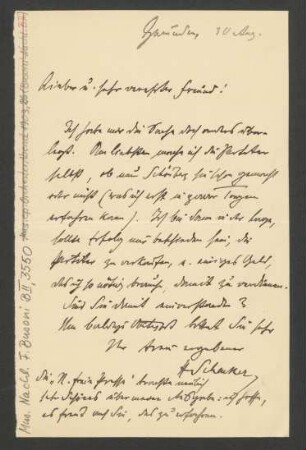 Gmunden, 30 Aug.
Lieber u. sehr verehrter Freund!
Ich habe mir die Sache doch anders über-
legt. Am liebsten mache ich die Partitur
selbst, ob nun Schönberg sie schon gemacht
oder nicht (was ich erst in zwei Tagen
erfahren kann). Ich bin dann in der Lage,
sollte Erfolg mir beschieden sein, die
Partitur zu verkaufen, u. einiges Geld,
das ich so nötig brauche, damit zu verdienen.
Sind Sie damit einverstanden?
Um baldige Antwort bittet Sie sehr
Ihr treu ergebener
H Schenker
die „N. freie Presse" brachte neulich
sehr Schönes über meine Ausgabe: ich hoffe,
es freut auch Sie, das zu erfahren.
Mus. Nachl. F. Busoni B II, 3550